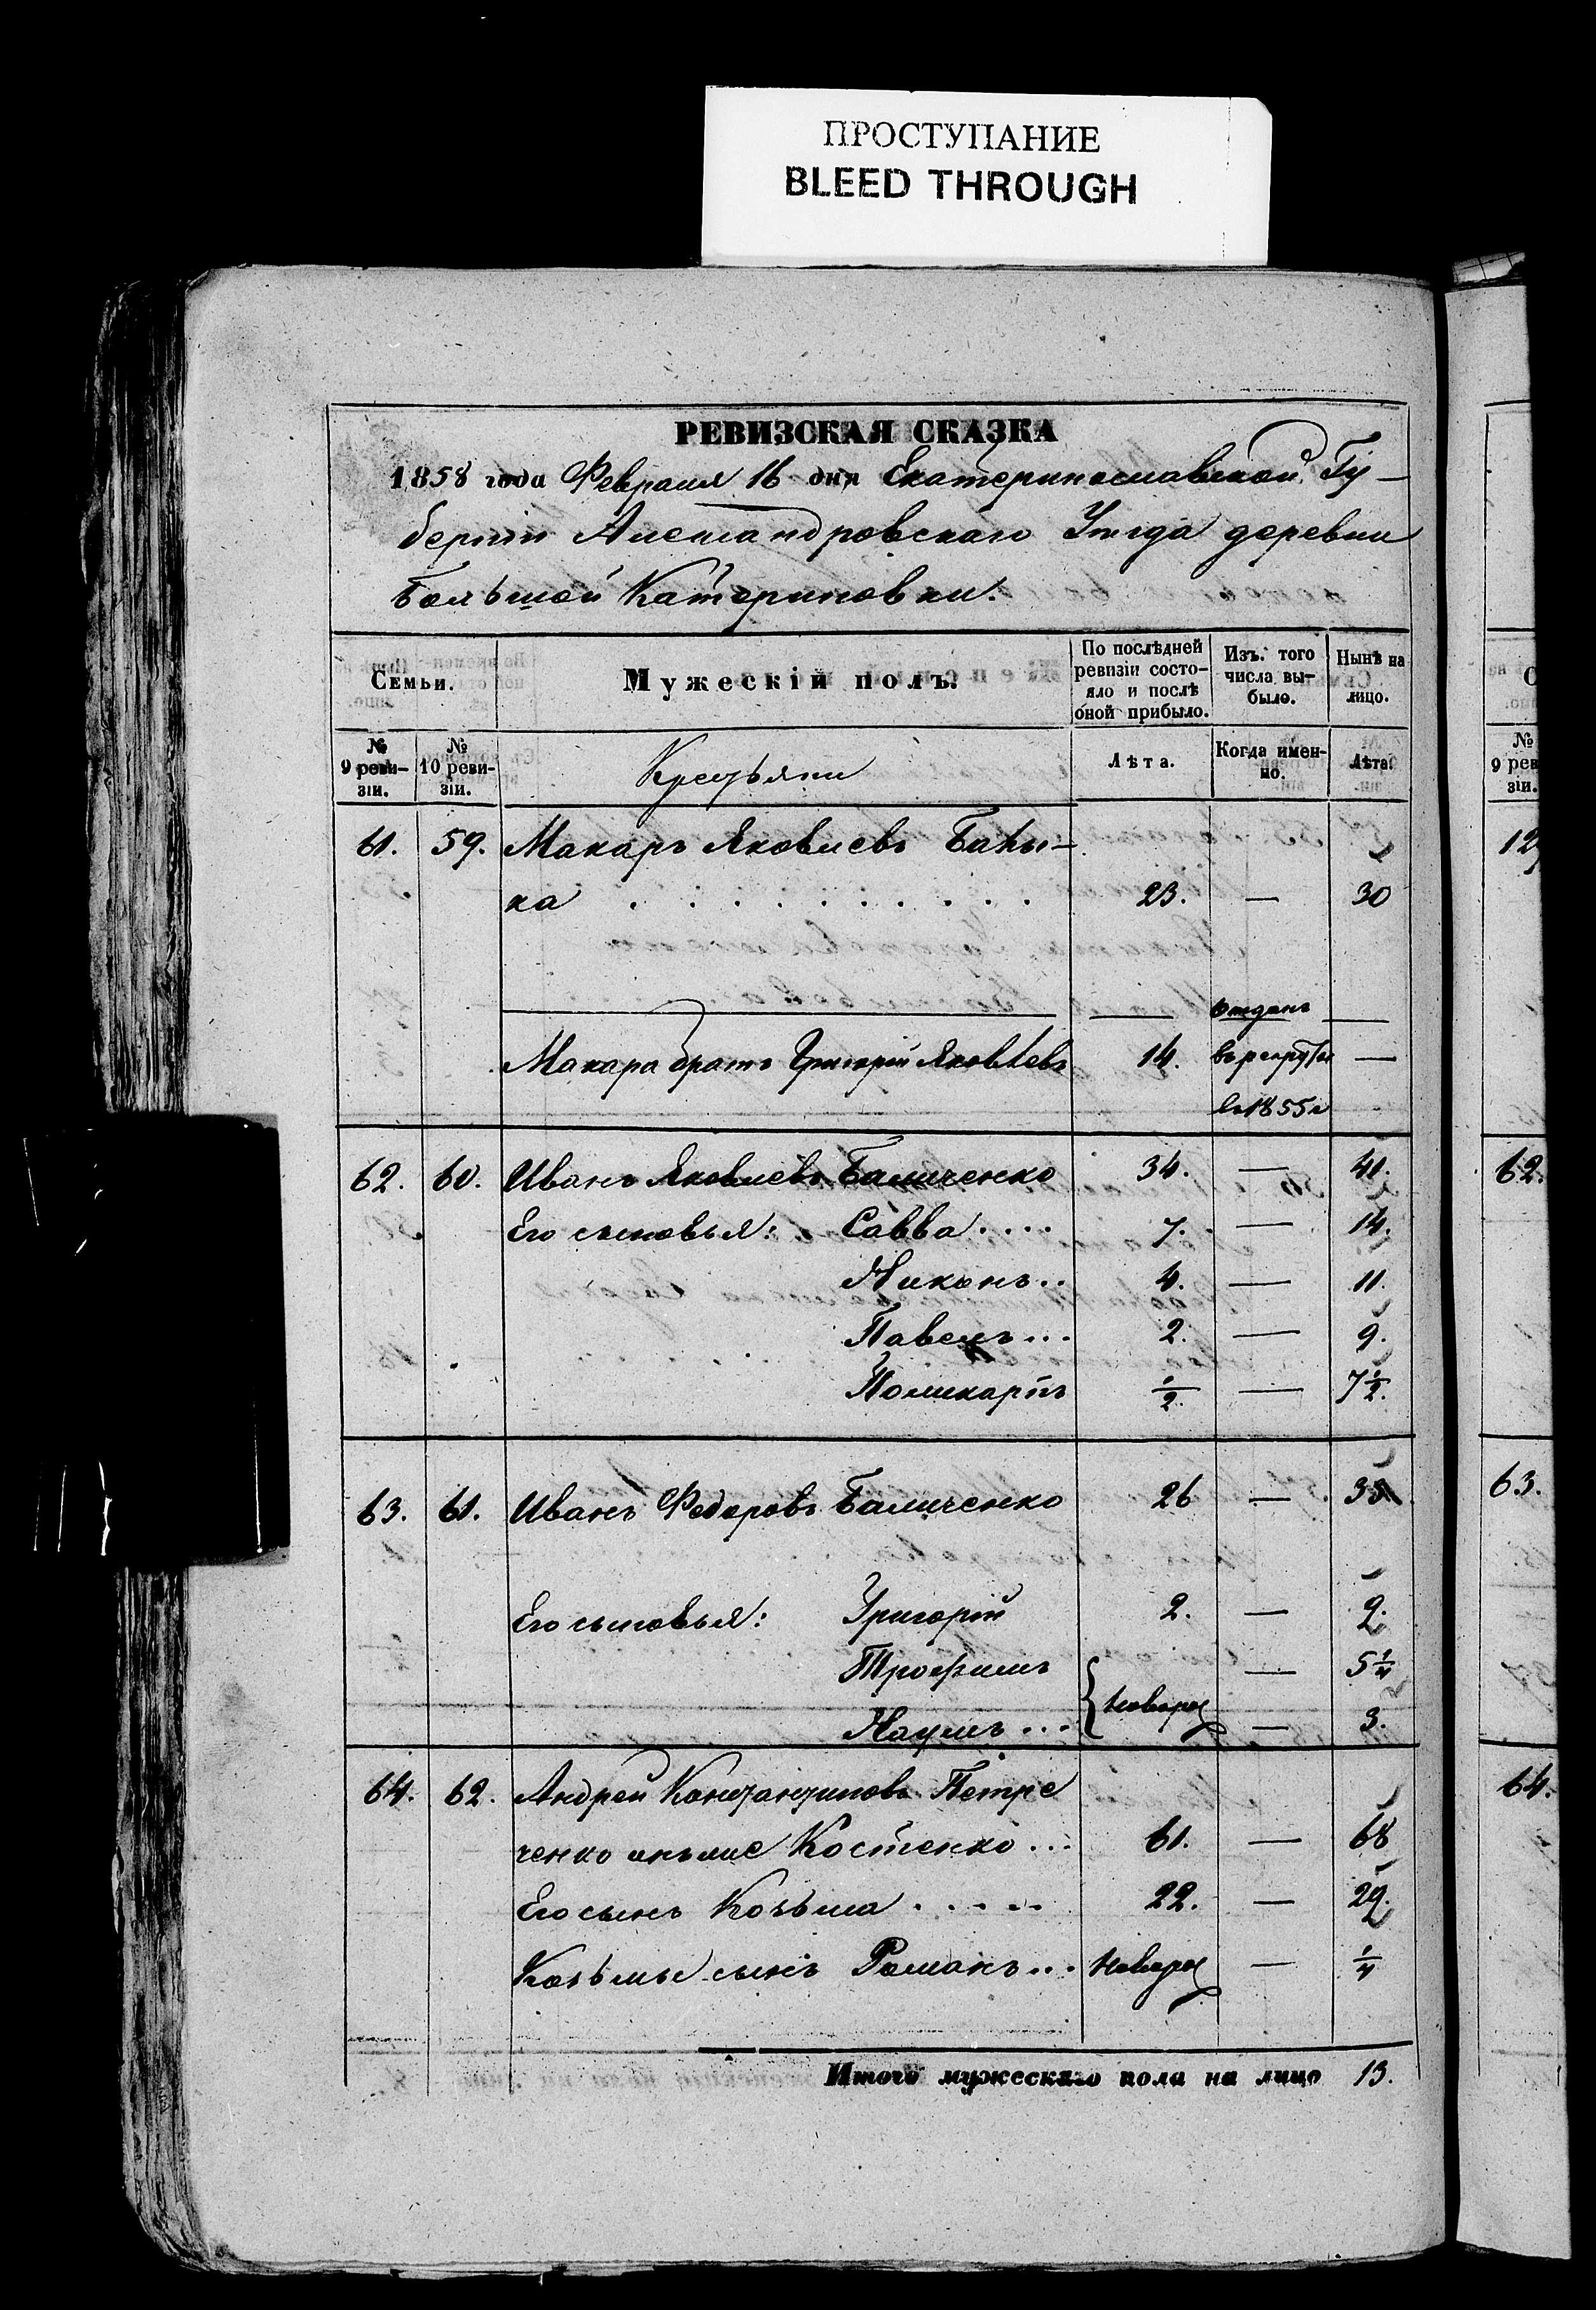 ПРОСТУПАНИЕ
BLEED THROUGH
РЕВИЗСКАЯ СКАЗКА
1858 года Февраля 16 дня Екатеринославской Гу-
берніи Александровскаго Уѣзда деревни
Большой Катериновки.
Семьи. Мужескій полъ. По послѣдней ревизіи состо-яло и послѣ оной прибыло. Изъ того числа вы-было. Нынѣ на лицо.
№ 9 реви-зіи. № 10 реви-зіи. Крестьяни Лѣта. Когда имен-но. Лѣта.
61. 59. Макаръ Яковлевъ
ка 23. — 30
отданъ
Макара братъ Григорій Яковлевъ 14. въ рекруты —
въ 1855 г
62. 60. Иванъ Яковлевъ Баличенко 34. — 41.
Его сыновья: Савва 7. — 14.
Никонъ 4. — 11.
Павелъ 2. — 9.
Поликарпъ 1/2. — 7 1/2.
63. 61. Иванъ Федоровъ Баличенко 26 —
Его сыновья: Григорій 2. — 9.
Трофимъ — 5 1/4
Наумъ новорож — 3.
64. 62. Андрей Константиновъ Петре
ченко онъ же Костенко 61. — 68
Его сынъ Козьма 22. — 29.
Козьмы сынъ Романъ новорож — 1/4
Итого мужескаго пола на лицо 13.
№ 9 рев зіи.
12
62.
63.
64.